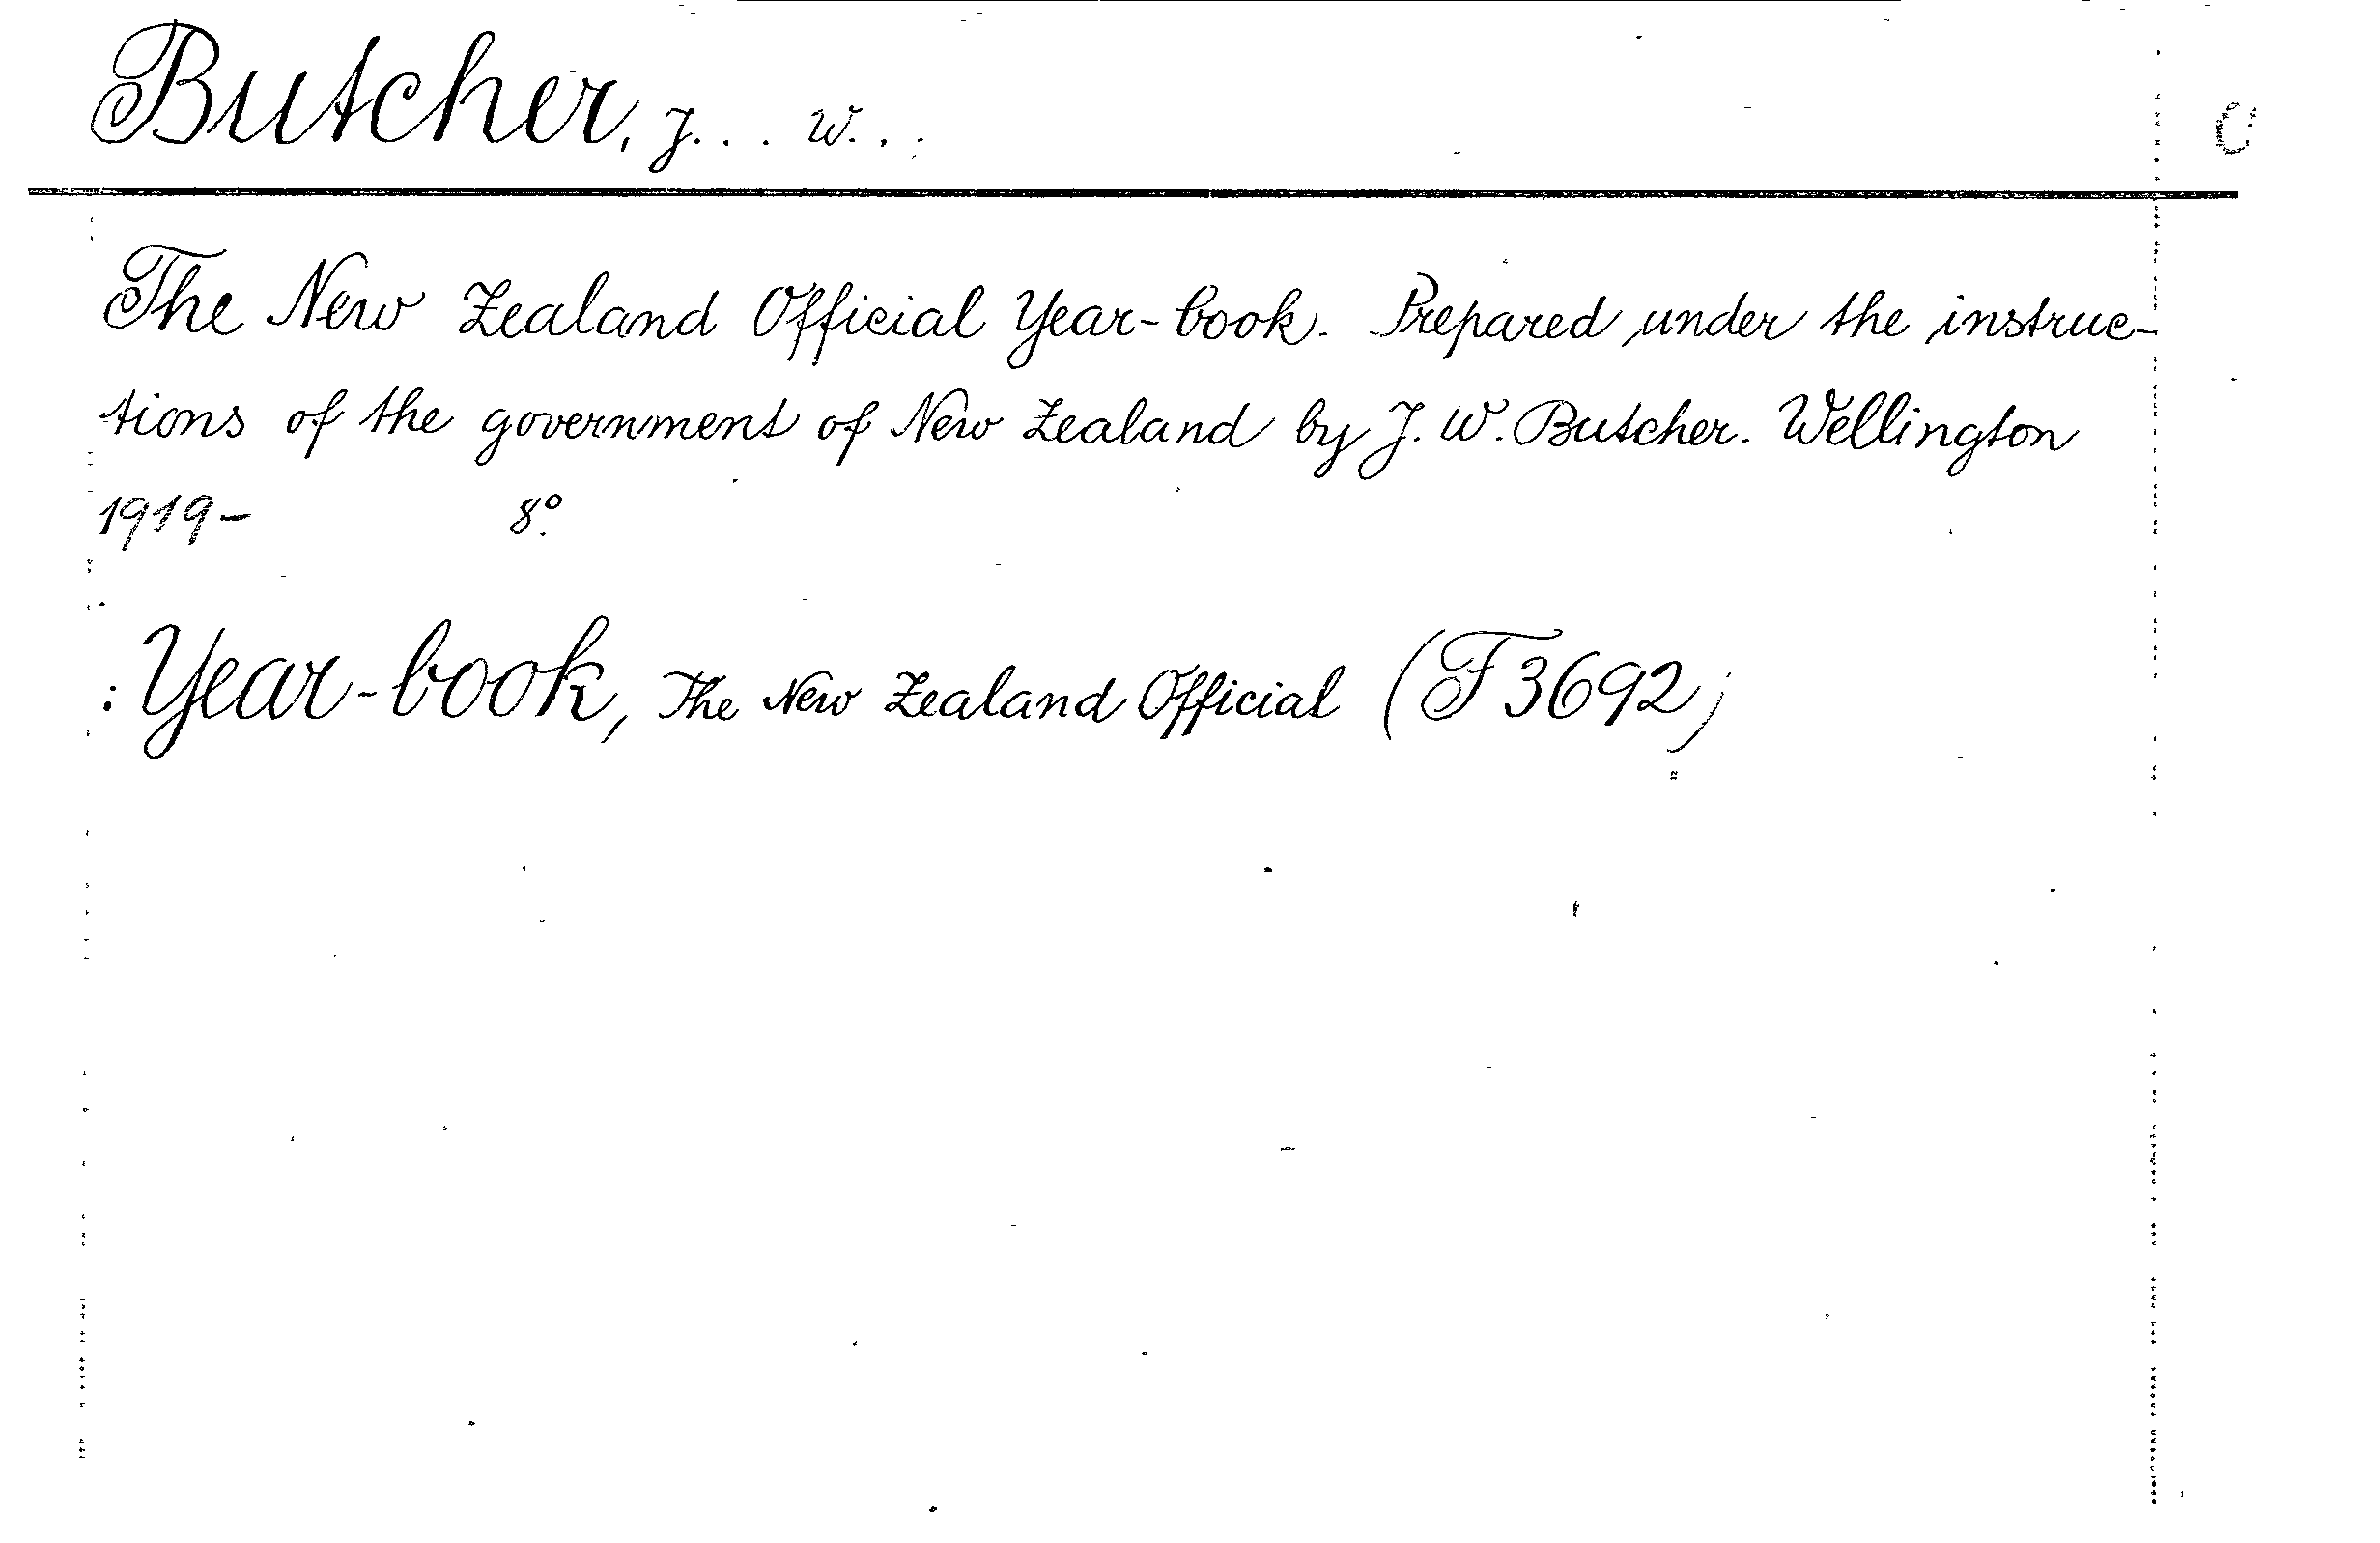 Butcher, J... W...
C
The New Zealand Official Year-book. Prepared under the instruc-
tions of the government of New Zealand by J. W. Butcher. Wellington
1919- 8º.
: Year-book, The New Zealand Official (F3692)